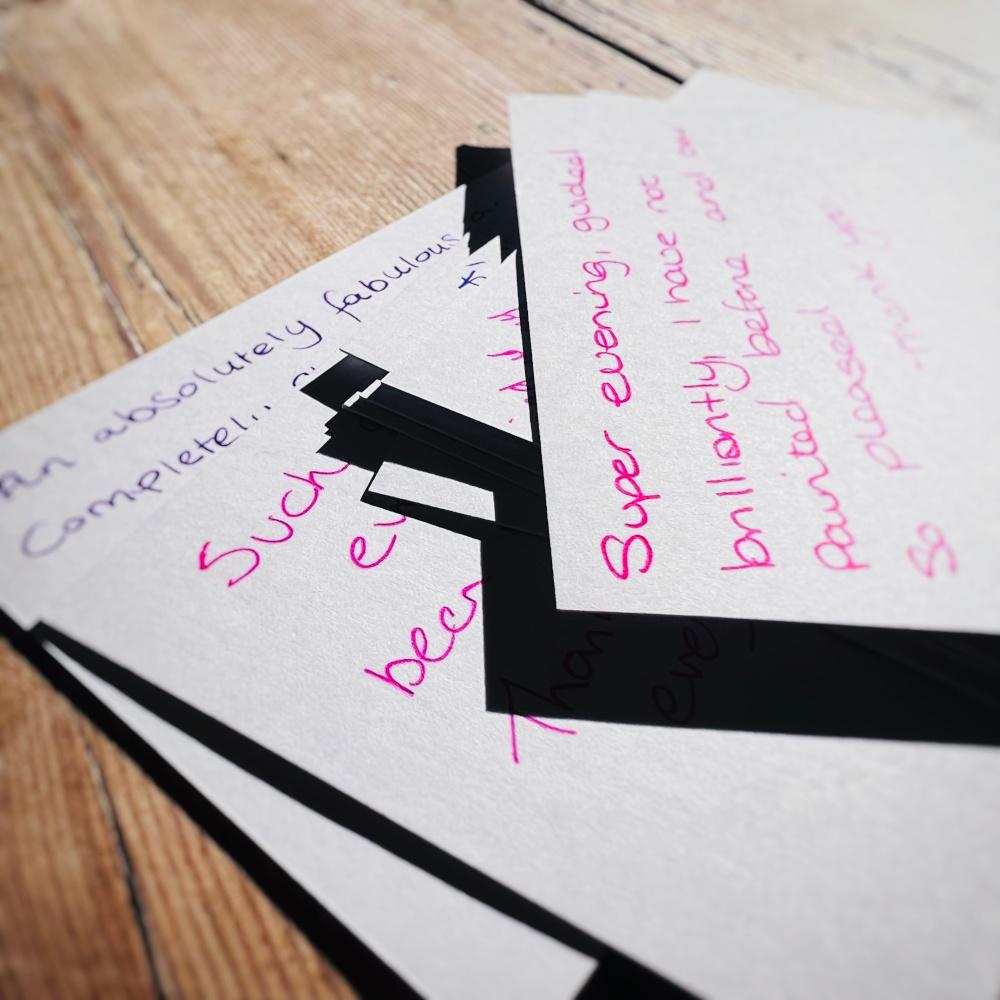 An absolutely fabulous
Completel...
Such
been
Than
eve
Super evening, guided
brilliantly, I have not
painted before and am
So pleased. Thank you